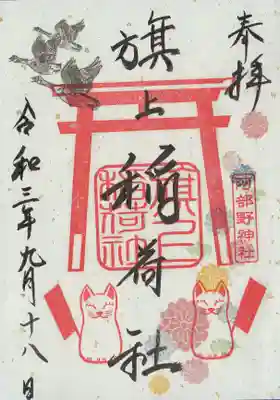 奉拝
阿部野神社
旗上稲荷社
旗上稲荷神
令和三年九月十八日